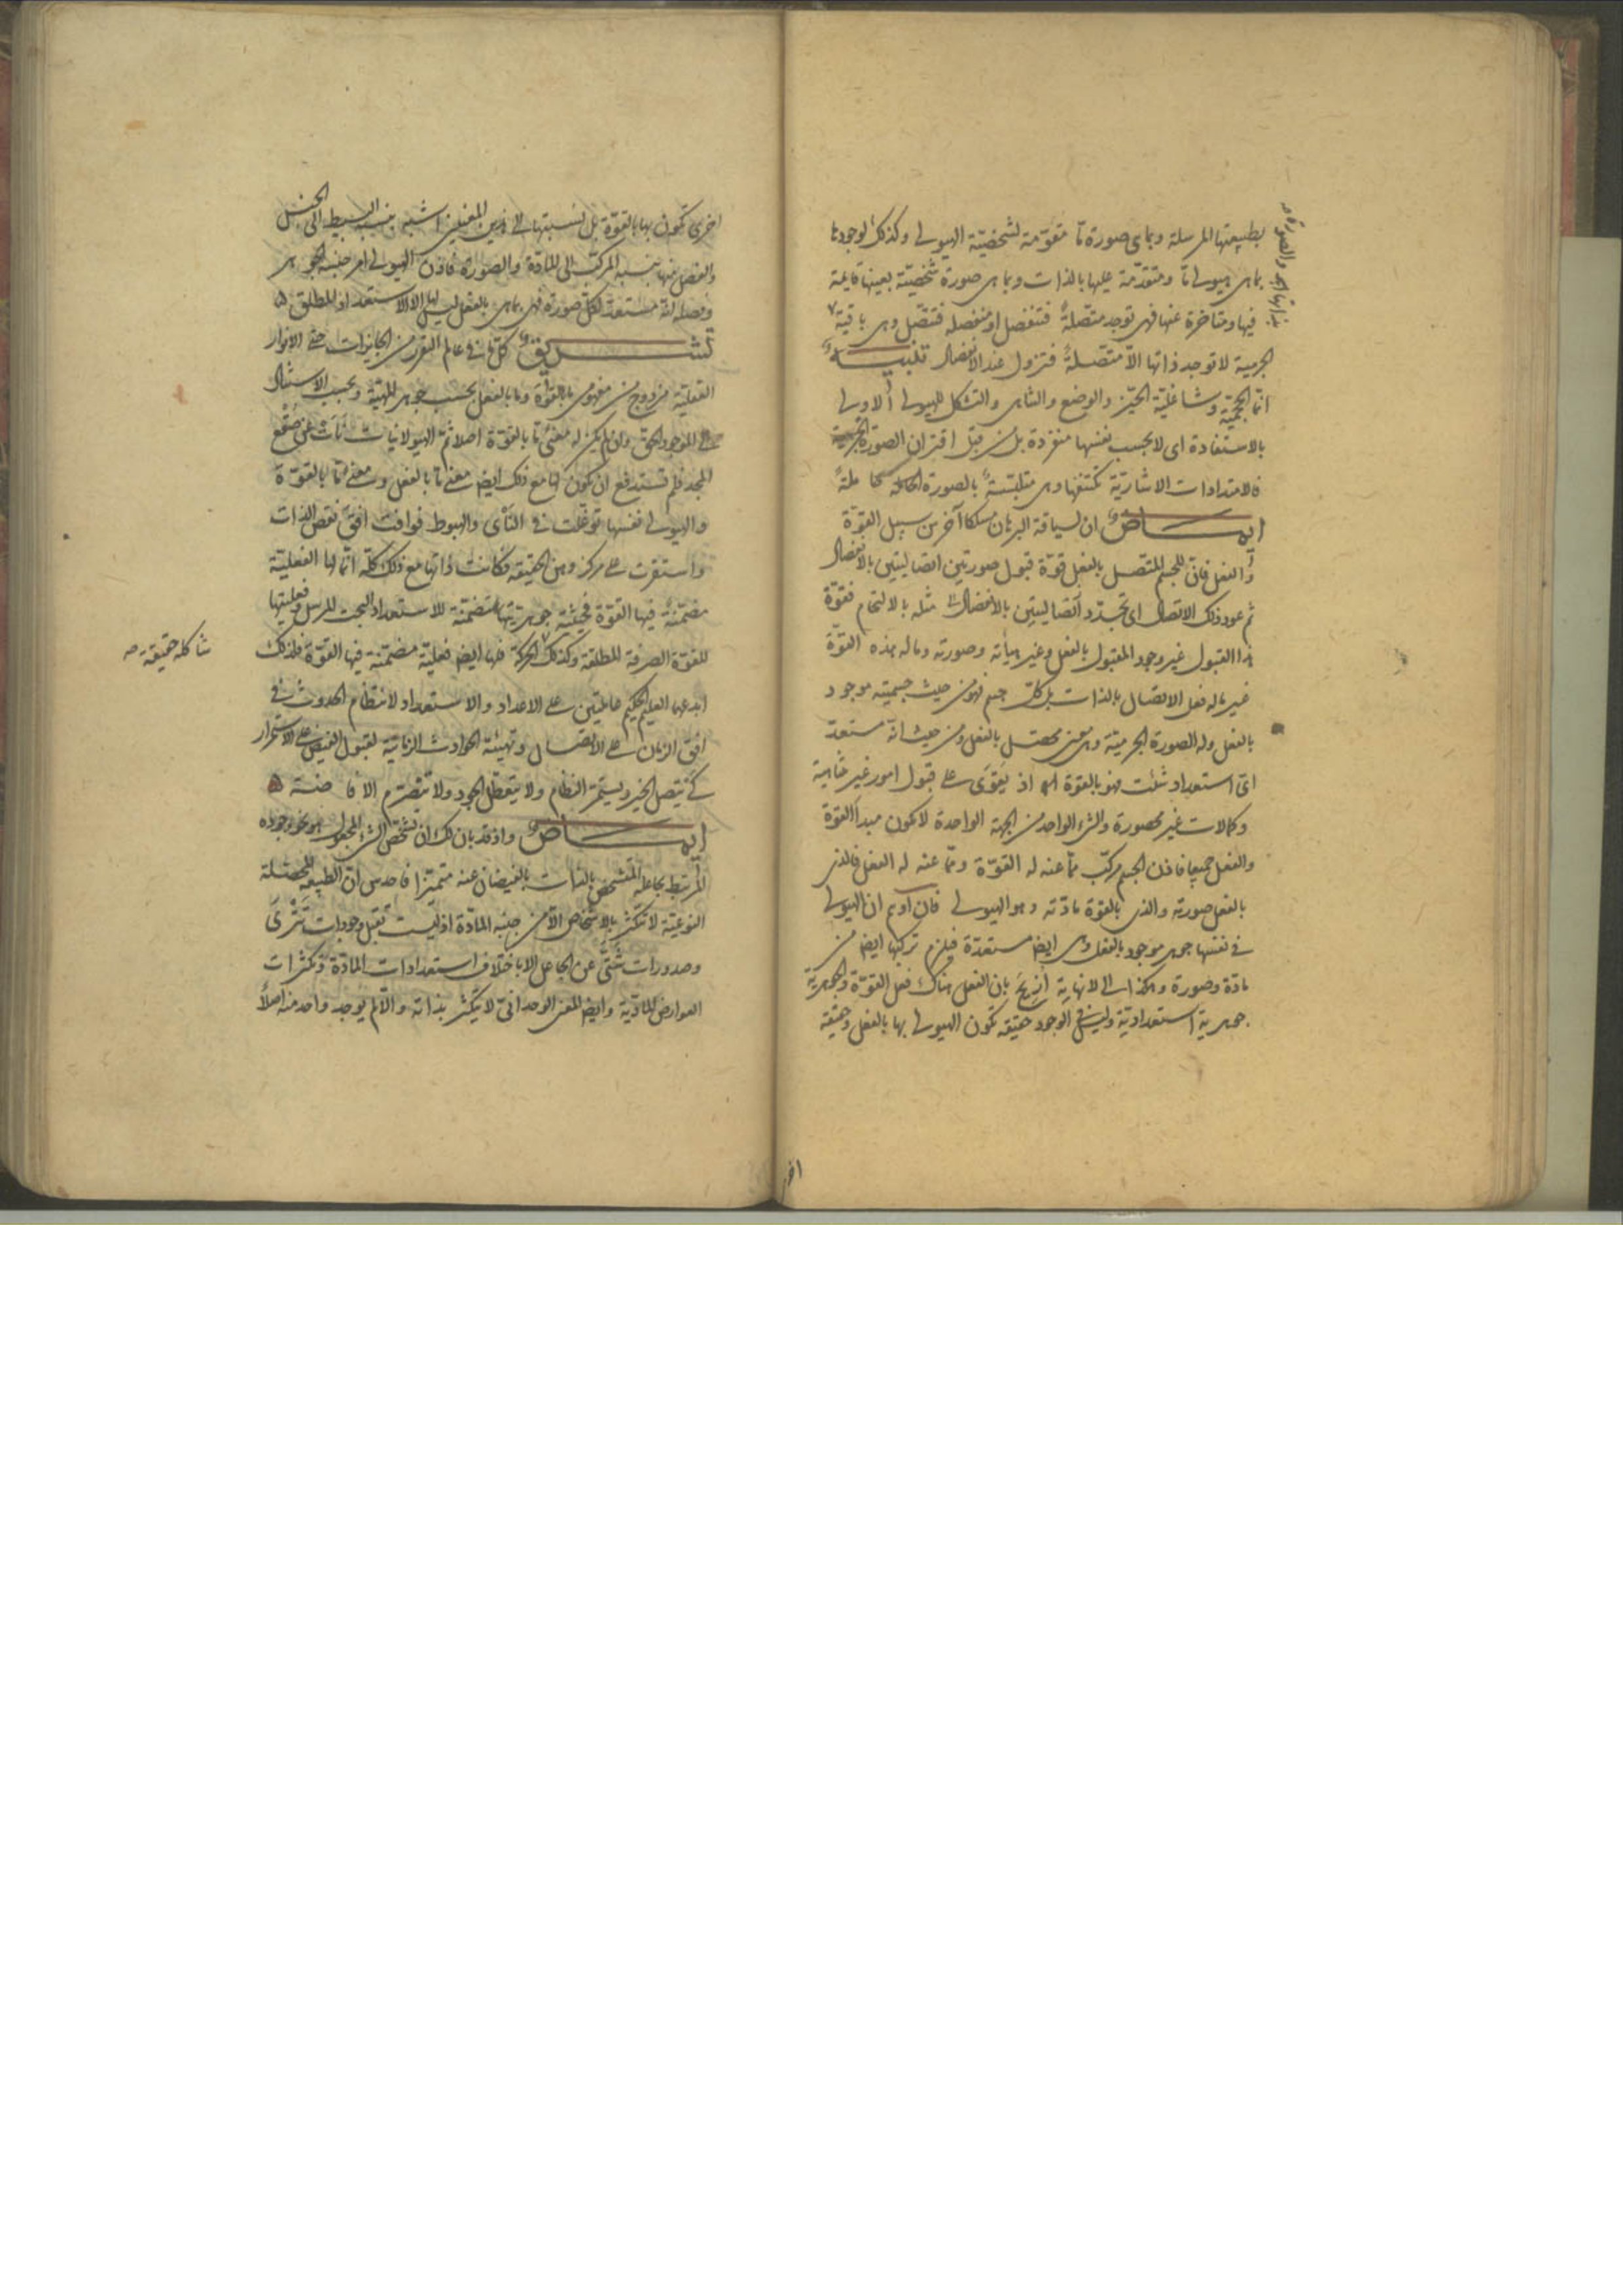 بطبيعتها المرسلة وبما هى صورة ما مقومة لشخصيّة الهيولى وكذلك لوجودها
بما هى هيولى ما ومتقدّمة عليها بالذات وبما هى صورة شخصيّة بعينها قايمة
فيها ومتاخرة عنها فهى توجد متصلةً فتنفصل او منفصله فتتصل وهى باقية
بذاتها والصورة
الجرمية لا توجد ذاتها الاّ متّصلةً فتزول عند الانفصال تنبيه
انّما الحجميّة وشاغليّة الحيّز والوضع والتناهى والتشكل للهيولى الاولى
بالاستفادة اى لا بحسب نفسها منفردة بل من قبل اقتران الصورة الجرمية
فالامتدادات الاشاريّة تكتنفها وهى متلبّسةً بالصورة الحالة كما ملةً
ايماض ان لسياقة البرهان مسلكا آخر من سبيل القوّة
والفعل فانّ للجسم المتصل بالفعل قوّة قبول صورتين اتصاليتين بالانفصال
ثم عود ذلك الاتصال اى تجدّد اتصاليتين بالانفصال مثله بالالتحام فقوّة
هذا القبول غير وجود المقبول بالفعل وغير هيأته وصورته وما له هذه القوّة
غير ما له فعل الاتصال بالذات بل كلّ جسم فهو من حيث جسميته موجود
بالفعل وله الصورة الجرميّة وهى معنى محصّل بالفعل ومن حيث انّه مستعدّ
اىّ استعداد شئت فهو بالقوة اذ يَقوَى على قبول امور غير متناهية
وكمالات غير محصورة والشئ الواحد من الجهة الواحدة لا يكون مبدأ القوّة
والفعل جميعا فاذن الجسم مركّب ممّا عنه له القوّة وممّا عنه له الفعل فالذى
بالفعل صورته والذى بالقوة مادّته وهو الهيولى فان اوهم ان الهيولى
فى نفسها جوهر موجود بالفعل وهى ايضا مستعدّة فيلزم تركبها ايضا من
مادّة وصورة وهكذا الى لا نهاية ازيح بان الفعل هناك فعل القوّة والجوهريّة
جوهريّة استعداديّة وليس فى الوجود حقيقة تكون الهيولى بها بالفعل وحقيقة
اخر
اخرى تكون بها بالقوّة بل نسبتها الى هذين المعنيين اشبه بنسبة البسيط الى الجنس
والفصل منها بنسبة المركّب الى المادّة والصورة فاذن الهيولى امر جنسه الجوهر
وفصله انّه مستعدّ لكلّ صورة فهى بما هى بالفعل ليس لها الا الاستعداد المطلق
تشريق كلّ ما فى عالم التقرر من الجايزات حتى الانوار
العقلية مزدوج من مفهومى ما بالقوّة وما بالفعل بحسب جوهر المهيّة وبحسب الاستناد
الى الموجود الحق وان لم يكن له معنى ما بالقوّة اصلا ثم الهيولانيات نَأَت عن صُقع
المجد فلم تستدفع ان يكون لها مع ذلك ايضا معنى ما بالفعل ومعنى ما بالقوّة
والهيولى نفسها توغّلت فى النأى والهبوط فوافت افق نقص الذات
واستقرت على مركز وهن الحقيقة فكانت ذاتها مع ذلك كلّه انّما لها الفعلية
مضمّنة فيها القوّة فحيثيّة جوهريّتها متضمّنة للاستعداد البحت المرسل وفعليتها
للقوّة الصرفة المطلقة وكذلك الحركة فلها ايضا فعليّة مضمّنة فيها القوّة فلذلك
شاكلة حقيقة
ابدعهما العليم الحكيم حاملتين على الاعداد والاستعداد لانتظام الحدوث فى
افق الزمان على الاتصال وتهيئة الحوادث الزمانية لقبول الفيض على الاستمرار
كى يتصل الخير ويستمر النظام ولا يتعطّل الجود ولا يتصرّم الافاضة
ايماض واذ قد بان لك ان تشخّص الشئ المجعول هو نحو وجوده
المرتبط بجاعله المتشخص بالذات بالفيضان عنه متميّزا فاحدس انّ الطبيعة المحصّلة
النوعيّة لا تتكثّر بالاشخاص الاّ من جنبة المادّة اذ ليست تقبل وجودات تترى
وصدورات شتّى عن الجاعل الا باختلاف استعدادات المادّة وتكثرات
العوارض المادّية وايضا المعنى الوحدانىّ لا يتكثّر بذاته والاّ لم يوجد واحد منه اصلاً